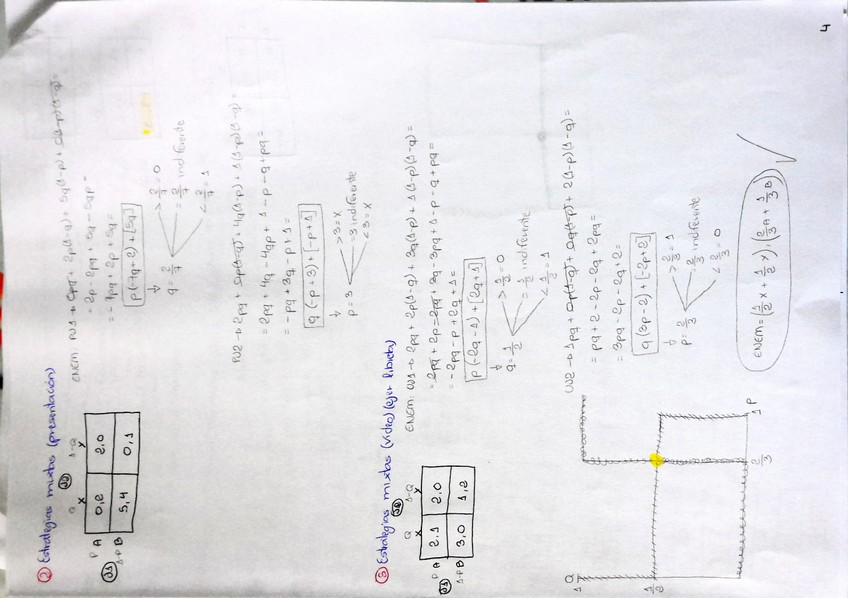 ② Estrategias mixtas (presentación)
J2
Q 1-Q
X Y
J1 P A 0,2 2,0
1-P B 5,4 0,1
ENEM: UU1 → 0pq + 2p(1-q) + 5q(1-p) + 0(1-p)(1-q) =
= 2p - 2pq + 5q - 5qp =
= -7pq + 2p + 5q =
p(-7q+2) + [5q]
q = 2/7
> 2/7 = 0
= 2/7 indiferente
< 2/7 = 1
UU2 → 2pq + 0p(1-q) + 4q(1-p) + 1(1-p)(1-q) =
= 2pq + 4q - 4qp + 1 - p - q + pq =
= -pq + 3q - p + 1 =
q(-p+3) + [-p+1]
p = 3
> 3 = X
= 3 indiferente
< 3 = X
③ Estrategias mixtas (vídeo) (ejer libreta)
J2
Q 1-Q
X Y
J1 P A 2,1 2,0
1-P B 3,0 1,2
ENEM: UU1 → 2pq + 2p(1-q) + 3q(1-p) + 1(1-p)(1-q) =
= 2pq + 2p - 2pq + 3q - 3pq + 1 - p - q + pq =
= -2pq - p + 2q + 1 =
p(-2q-1) + [2q+1]
q = 1/2
> 1/2 = 0
= 1/2 indiferente
< 1/2 = 1
UU2 → 1pq + 0p(1-q) + 0q(1-p) + 2(1-p)(1-q) =
= pq + 2 - 2p - 2q + 2pq =
= 3pq - 2p - 2q + 2 =
q(3p-2) + [-2p+2]
p = 2/3
> 2/3 = 1
= 2/3 indiferente
< 2/3 = 0
Q
1
1/2
2/3
1
P
ENEM = (1/2 X + 1/2 Y), (2/3 A + 1/3 B)
4